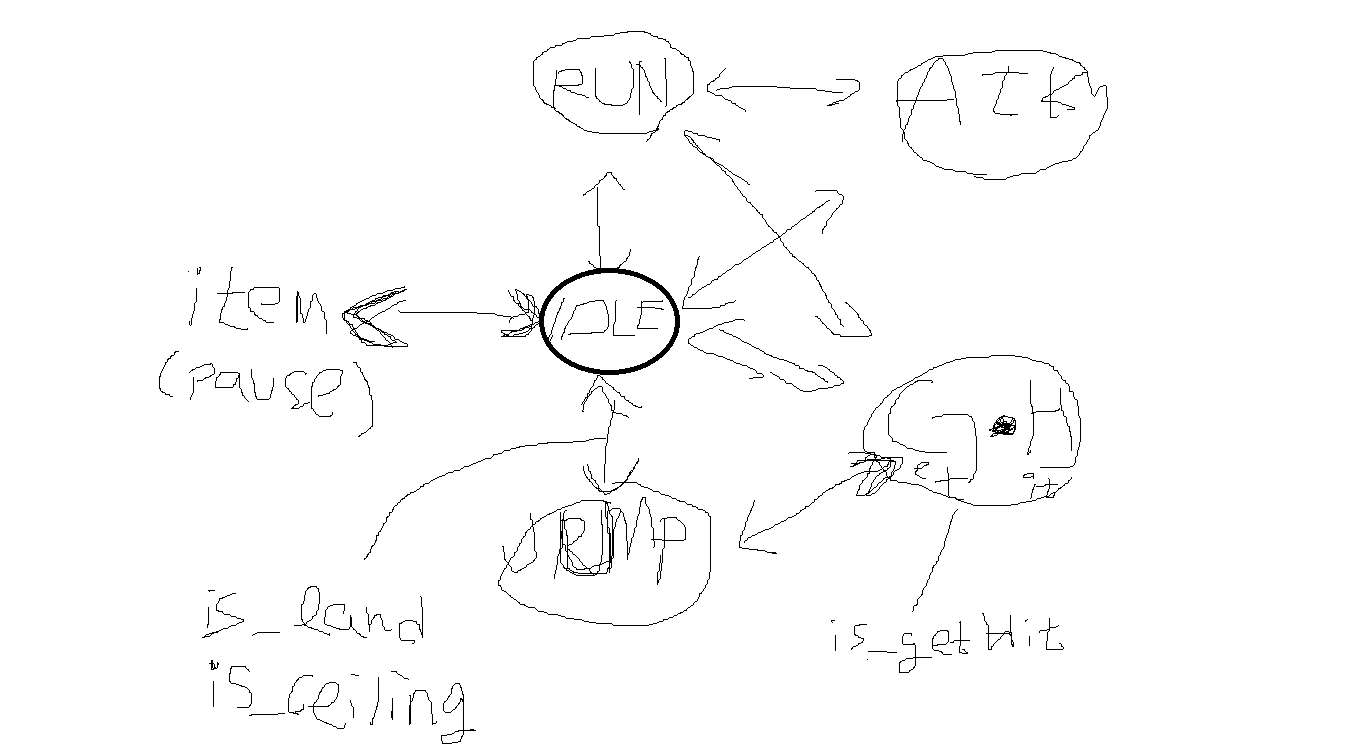 RUN
ATK
IDLE
item
(pause)
G.H
et it
JUMP
is_land
is_ceiling
is_getHit